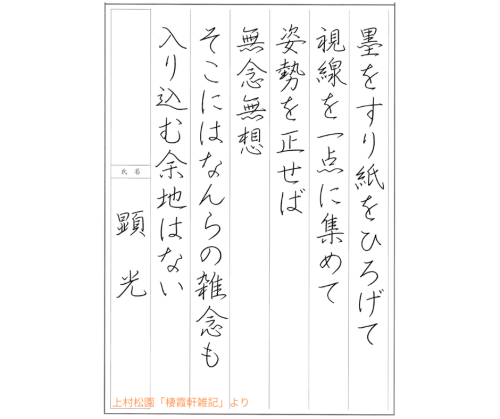 墨をすり紙をひろげて
視線を一点に集めて
姿勢を正せば
無念無想
そこにはなんらの雑念も
入り込む余地はない
氏名
顕光
上村松園「棲霞軒雑記」より